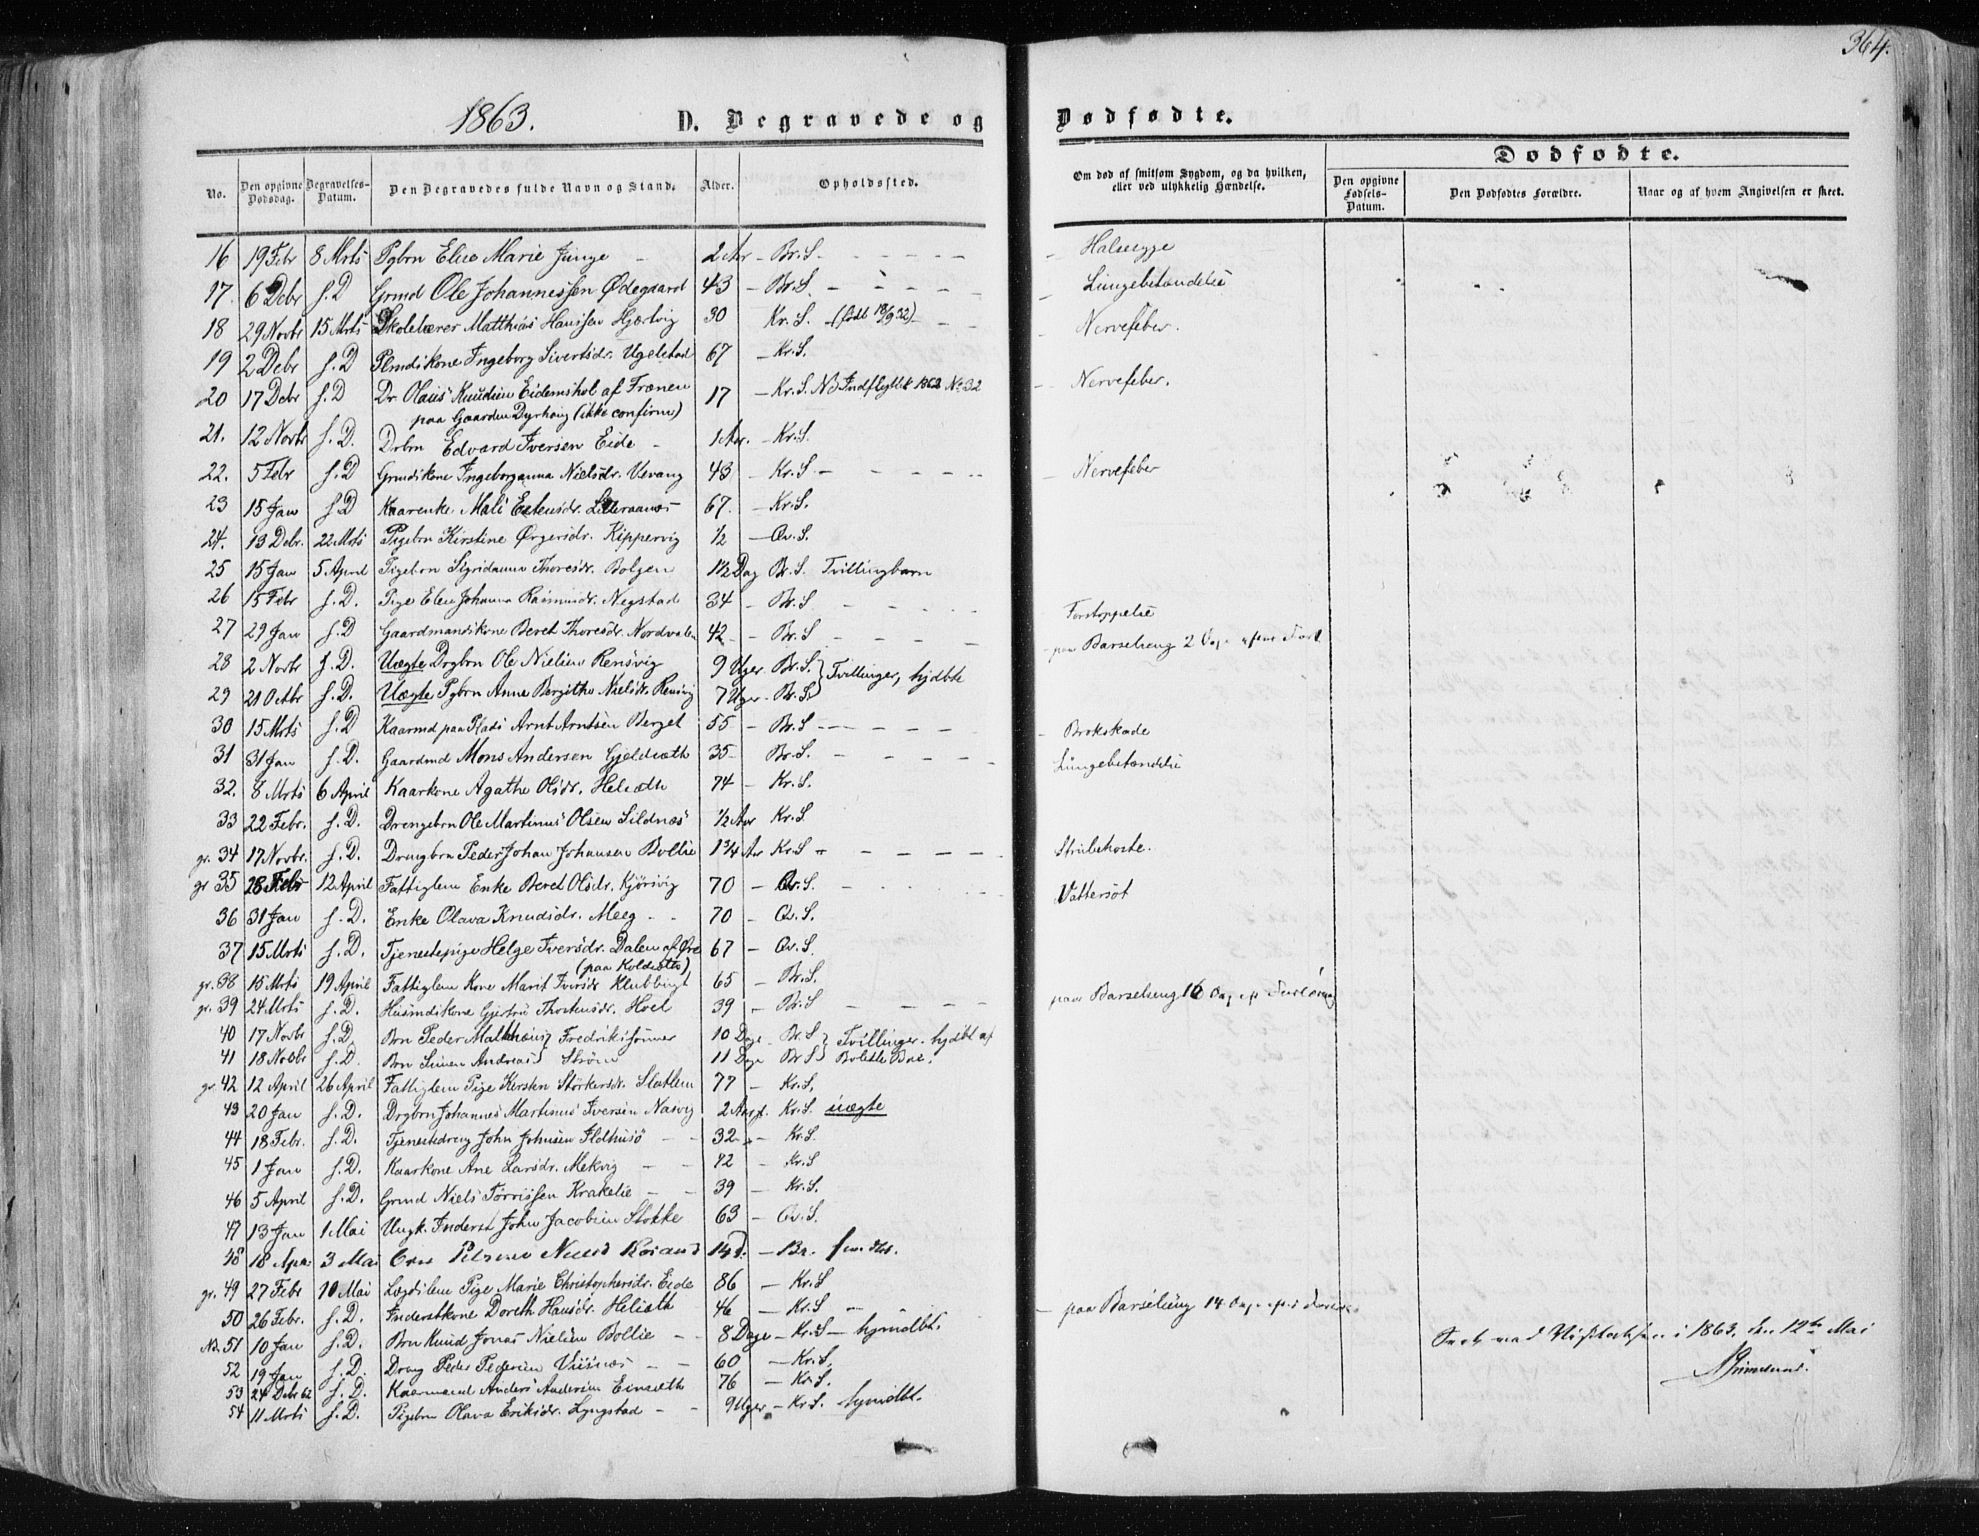 364.
1863.
D. Begravede og Dødfødte.
No. Den opgivne Dødsdag. Begravelses-Datum. Den Begravedes fulde Navn og Stand. Alder. Opholdssted. Om død af smitsom Sygdom, og da hvilken, eller ved ulykkelig Hændelse. Dødfødte. Den opgivne Fødsels-Datum. Den Dødfødtes Forældre. Naar og af hvem Angivelsen er skeet.
16 19 Febr 8 Mrts Pgbrn Elise Marie Junge 2 Aar - Br. S. - Halssyge
17. 6 Debr s. D Grmd Ole Johannessen Ødegaard 43 - Br. S. - Lungebetændelse
18 29 Novbr 15 Mrts Skolelærer Matthias Hanssen Hjørtvig 30 Kr. S. (født 18/9 32) - Nervefeber.
19 2 Debr s. D Plmdskone Ingeborg Sivertsdr. Ugelstad 67 - Kr. S.
20 17 Debr s. D Dr. Olaus Knudsen Eidemshol af Frænen 17 - Kr. S. NB Indflyttet 1862 No. 32 - Nervefeber.
paa Gaarden Dyrhaug (ikke confirm)
21. 12 Novbr s. D. Drbrn Edvard Iversen Eide - 1 Aar. - Kr. S.
22. 5 Febr s. D Grmdskone Ingeborganna Nielsdr. Vevang 43 - Kr. S - Nervefeber
23 15 Jan s. D Kaarenke Mali Estensdr. Lilleraanes 67. - Kr. S.
24. 13 Debr. 22 Mrts Pigebrn Kirstine Ørgersdr. Kippervig 1/2 - Qv. S.
25 15 Jan 5 April Pigebrn Sigridanna Thoresdr. Bolgen 1 1/2 Dag Br. S. Tvillingbarn
26 15 Febr s. D. Pige Elen Johanna Rasmusdr. Negstad 34 - Br. S - Forstoppelse
27 29 Jan s. D Gaardmandskone Beret Thoresdr. Nordvalen 42 - Br. S - paa Barselseng 2 Dage efter Føds
28 2 Novbr s. D. Uægte Drgbrn Ole Nielsen Rensvig 9 Uger Br. S. } Tvillinger, hjdbte
29 21 Octbr s. D. Uægte Pgbrn Anne Bergithe Nielsdr. Rensvig 7 Uger - Br. S.
30 15 Mrts s. D Kaarmd paa Plads Arnt Arntsen Berget 55 - Br. S - Brokskade
31 31 Jan s. D. Gaardmd Mons Andersen Gjeldsæth 35 - Br. S. - Lungebetændelse
32. 8 Mrts 6 April Kaarkone Agathe Olsdr. Helsæth 74 - Kr. S.
33 22 Febr. s. D. Drengebrn Ole Martinus Olsen Sildnæs 1/2 Aar Kr. S
gr. 34 17 Novbr. s. D. Drengbrn Peder Johan Johansen Bollie 1 3/4 Aar Kr. S - Strubehoste.
gr 35 28 Febr 12 April Fattiglem Enke Beret Olsdr. Kjørsvig 70 - Qv. S. - Vattersot
36 31 Jan s. D. Enke Olava Knudsdr. Meeg - 70 - Qv. S.
37 15 Mrts s. D. Tjenestepige Helge Iversdr. Dalen af Øre 67 - Qv. S.
(paa Koldsæth)
gr. 38 15 Mrts 19 April Fattiglem Kone Marit Iversdr Klubbugt 65 - Br. S.
gr. 39 24 Mrts s. D. Husmdskone Gjertru Thorstensdr. Hoel 39 - Br. S - paa Barselseng 16 Dag
40 17 Novbr s. D. Brn Peder Mathæus } Fredrikssønner 10 Dage - Br. S } Tvillinger. hjdbt af
41 18 Novbr s. D. Brn Simen Andreas } Strøm 11 Dage Br S } Bolette Boe.
gr. 42 12 April 26 April Fattiglem Pige Kersten Størkersdr. Slatlem 77 - Kr. S.
43 20 Jan s. D. Drgbrn Johannes Martinus Iversen Nasvig 2 Aar Kr. S. uægte
44 18 Febr. s. D. Tjenestedreng John Johnsen Ildhusø - 32 - Kr. S.
45 1 Jan s. D. Kaarkone Ane Larsdr. Mekvig - 72 - Kr. S
46 5 April s. D. Grmd Niels Tørrissen Krakelie - 39 - Kr. S.
47 13 Jan 1 Mai Ungk. Inderst John Jacobsen Stokke 63 - Qv. S.
48 18 Apr. 3 Mai 14 D. - Br.
gr. 49 27 Febr 10 Mai Lægdslem Pige Marie Christophersdr. Eide 86 - Kr. S
50 26 Febr. s. D. Inderstkone Doreth Hansdr. Helsæth 46 - Kr. S - paa Barselseng 14 Dage
No. 51 10 Jan s. D. Brn Knud Jonas Nielsen Bollie - 8 Dage - Kr. S - hjemdbt. 1863. den 12te Mai
52 19 Jan s. D. Dreng Peder Pedersen Viisnæs - 60 - Kr. S.
53 24 Debr 62 s. D. Kaarmand Anders Andersen Einsæth 76 - Kr. S.
54 11 Mrts s. D. Pigebrn Olava Eriksdr. Lyngstad - 9 Uger - Kr. S. hjemdbt.